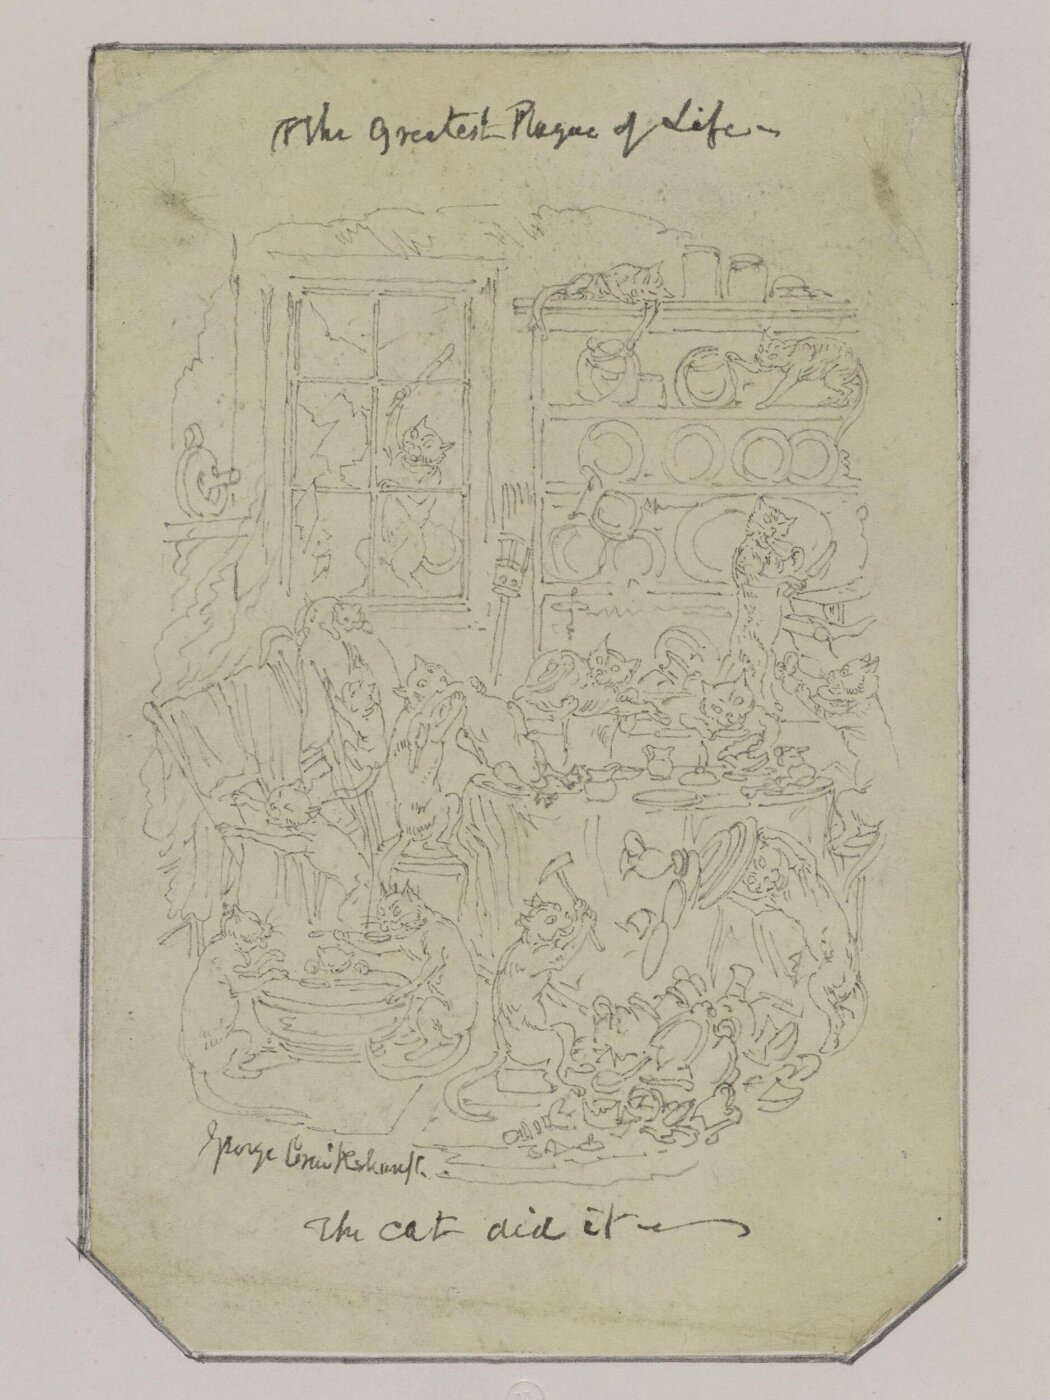 The Greatest Plague of Life
George Cruikshank
The cat did it